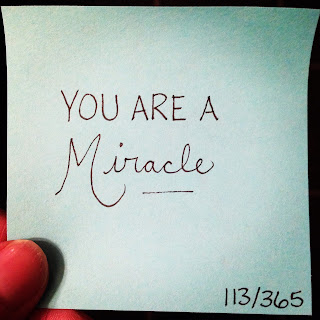 YOU ARE A
Miracle
113/365